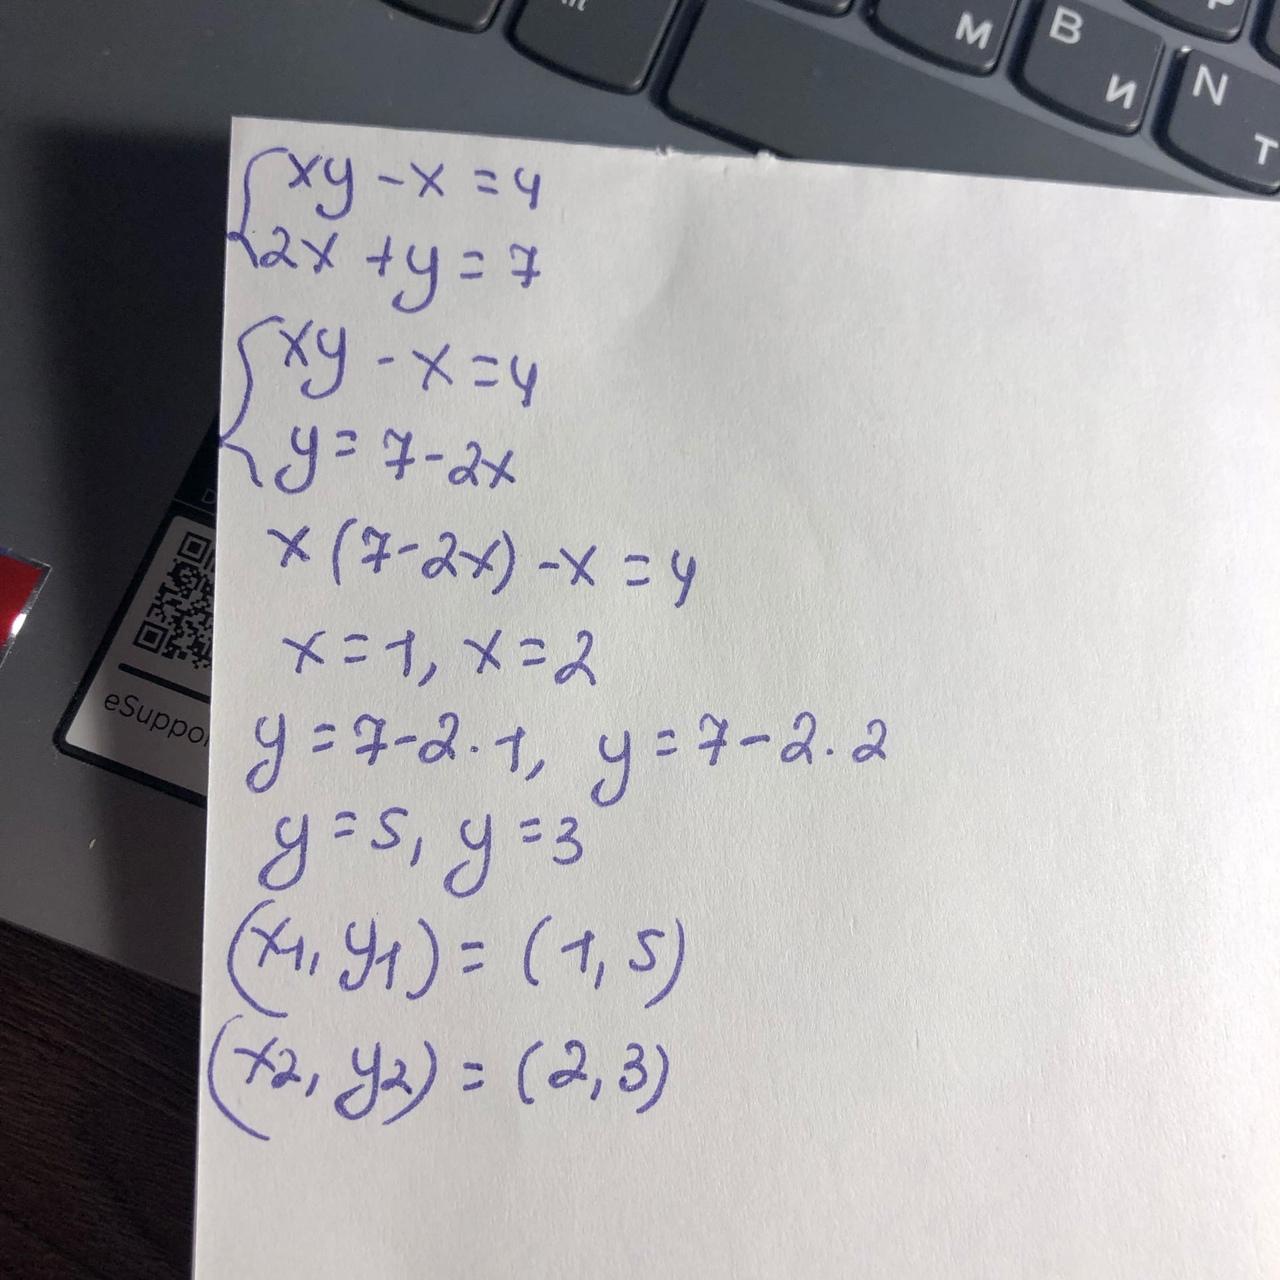 M
B
И
N
T
xy - x = 4
2x + y = 7
xy - x = 4
y = 7 - 2x
x (7 - 2x) - x = 4
x = 1, x = 2
y = 7 - 2 · 1, y = 7 - 2 · 2
y = 5, y = 3
(x1, y1) = (1, 5)
(x2, y2) = (2, 3)